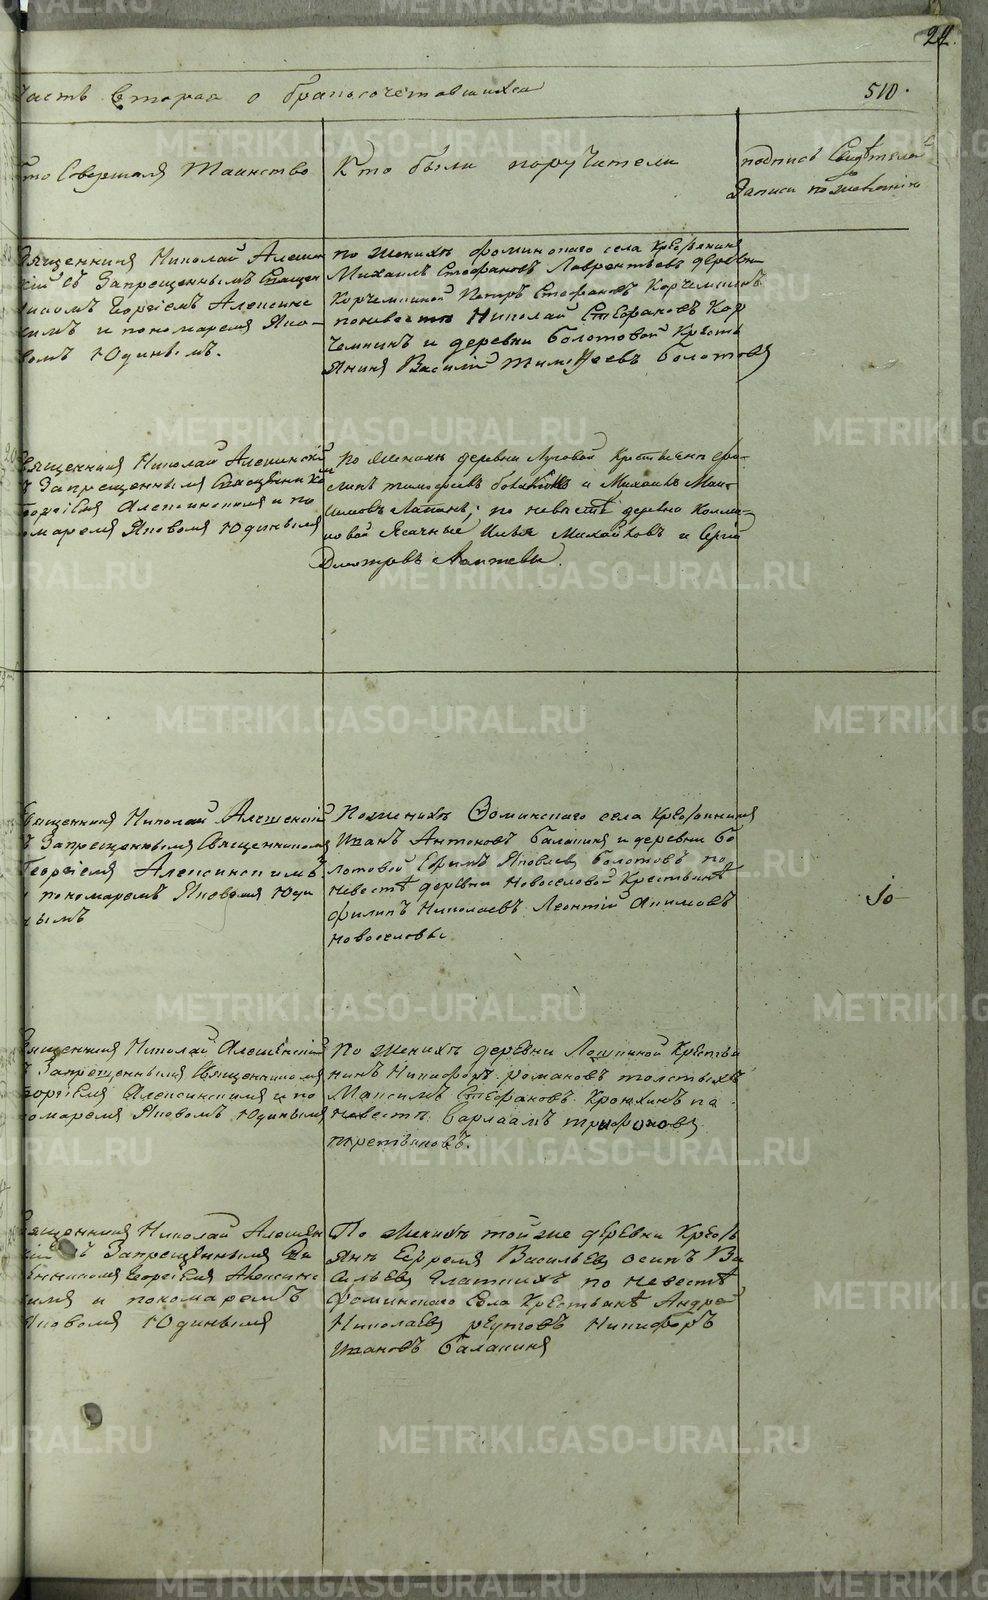 22.
часть вторая о бракосочетавшихся
510.
Кто Совершалъ Таинство
Кто были поручители
подпись Свидѣтелей
Записи по желанію
Священникъ Николай Алешин
скій съ Запрещеннымъ Священ
никомъ Георгіемъ Алексинс
кимъ и пономаремъ Яко-
вомъ Юдинымъ.
по женихѣ фоминского села Крестьянинъ
Михаилъ Стефановъ Лаврентьевъ деревни
Корчемкиной Петръ Стефановъ Корчемкинъ
по невестѣ Николай Стефановъ Кор
чемкинъ и деревни болотовой Кресть
янинъ Василій тимофеевъ болотовъ
Священникъ Николай Алешинскій
съ Запрещеннымъ Священнико
Георгіемъ Алексинскимъ и по
номаремъ Яковомъ Юдинымъ
по женихѣ деревни Луговой Крестьянъ
тимофеевъ и Михаилъ
по невестѣ деревни
Ясачные Илья Михайловъ и Сергій
Дмитровъ
Священникъ Николай Алешенскій
съ Запрещеннымъ Священникомъ
Георгіемъ Алексинскимъ
и пономаремъ Яковомъ Юди
нымъ
По женихѣ Фоминскаго села Крестьянинъ
Иванъ Антоновъ балакинъ и деревни бо
лотовой Ефимъ Яковлевъ болотовъ по
невестѣ деревни Новоселовой Крестьянѣ
филипъ Николаевъ Леонтій Акимовъ
новоселовы
Священникъ Николай Алешенскій
съ Запрещеннымъ Священникомъ
Георгіемъ Алексинскимъ и по
номаремъ Яковомъ Юдинымъ
по женихѣ деревни Крестья
нинъ Никифоръ романовъ толстыхъ
Максимъ Стефановъ Крюкинъ по
невестѣ Варлаамъ трифоновъ
третьяковъ.
Священникъ Николай Алешен
скій съ Запрещеннымъ Свя
щенникомъ Георгіемъ Алексинс
кимъ и пономаремъ
Яковомъ Юдинымъ
По женихѣ той же деревни Кресть
янѣ Ефремъ Васильевъ осипъ Ва
сильевъ по невестѣ
фоминскаго Села Крестьянѣ Андрей
Николаевъ реутовъ Никифоръ
Ивановъ балакинъ
METRIKI.GASO-URAL.RU